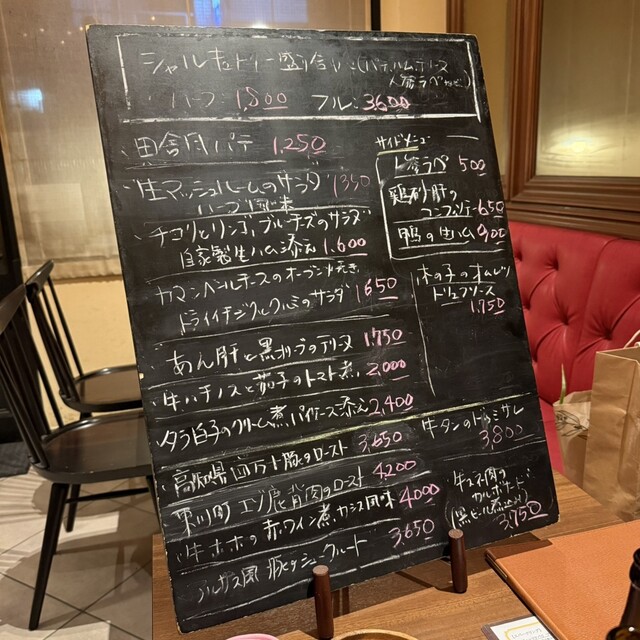 シャルキュトリー盛り合い:(パテ,ハム,テリース
人参ラペなど!)
ハーフ:1,800 フル:3600
田舎風パテ 1,250
生マッシュルームのサラダ 1350
ハーブ風味
チコリとリンゴ、ブルーチーズのサラダ
自家製生ハム添え 1,600
カマンベールチーズのオーブン焼き
ドライイチジクとクルミのサラダ 1650
あん肝と黒オリーブのテリーヌ 1,750
牛ハチノスと茄子のトマト煮 2,000
タラ白子のクリーム煮 パイケース添え 2,400
高知県四万十豚のロースト 3,650
エゾ鹿背肉のロースト 4,200
牛ホホの赤ワイン煮,カシス風味 4000
アルザス風 豚とシュークルート 3,650
サイドメニュー
人参ラペ 500
鶏砂肝の
コンフィ 650
鴨の生ハム 900
木の子のオムレツ
トリュフソース
1,750
牛タンのドゥミサレ
3,800
牛スネ肉の
カルボナード
(黒ビール煮込み)
3,750